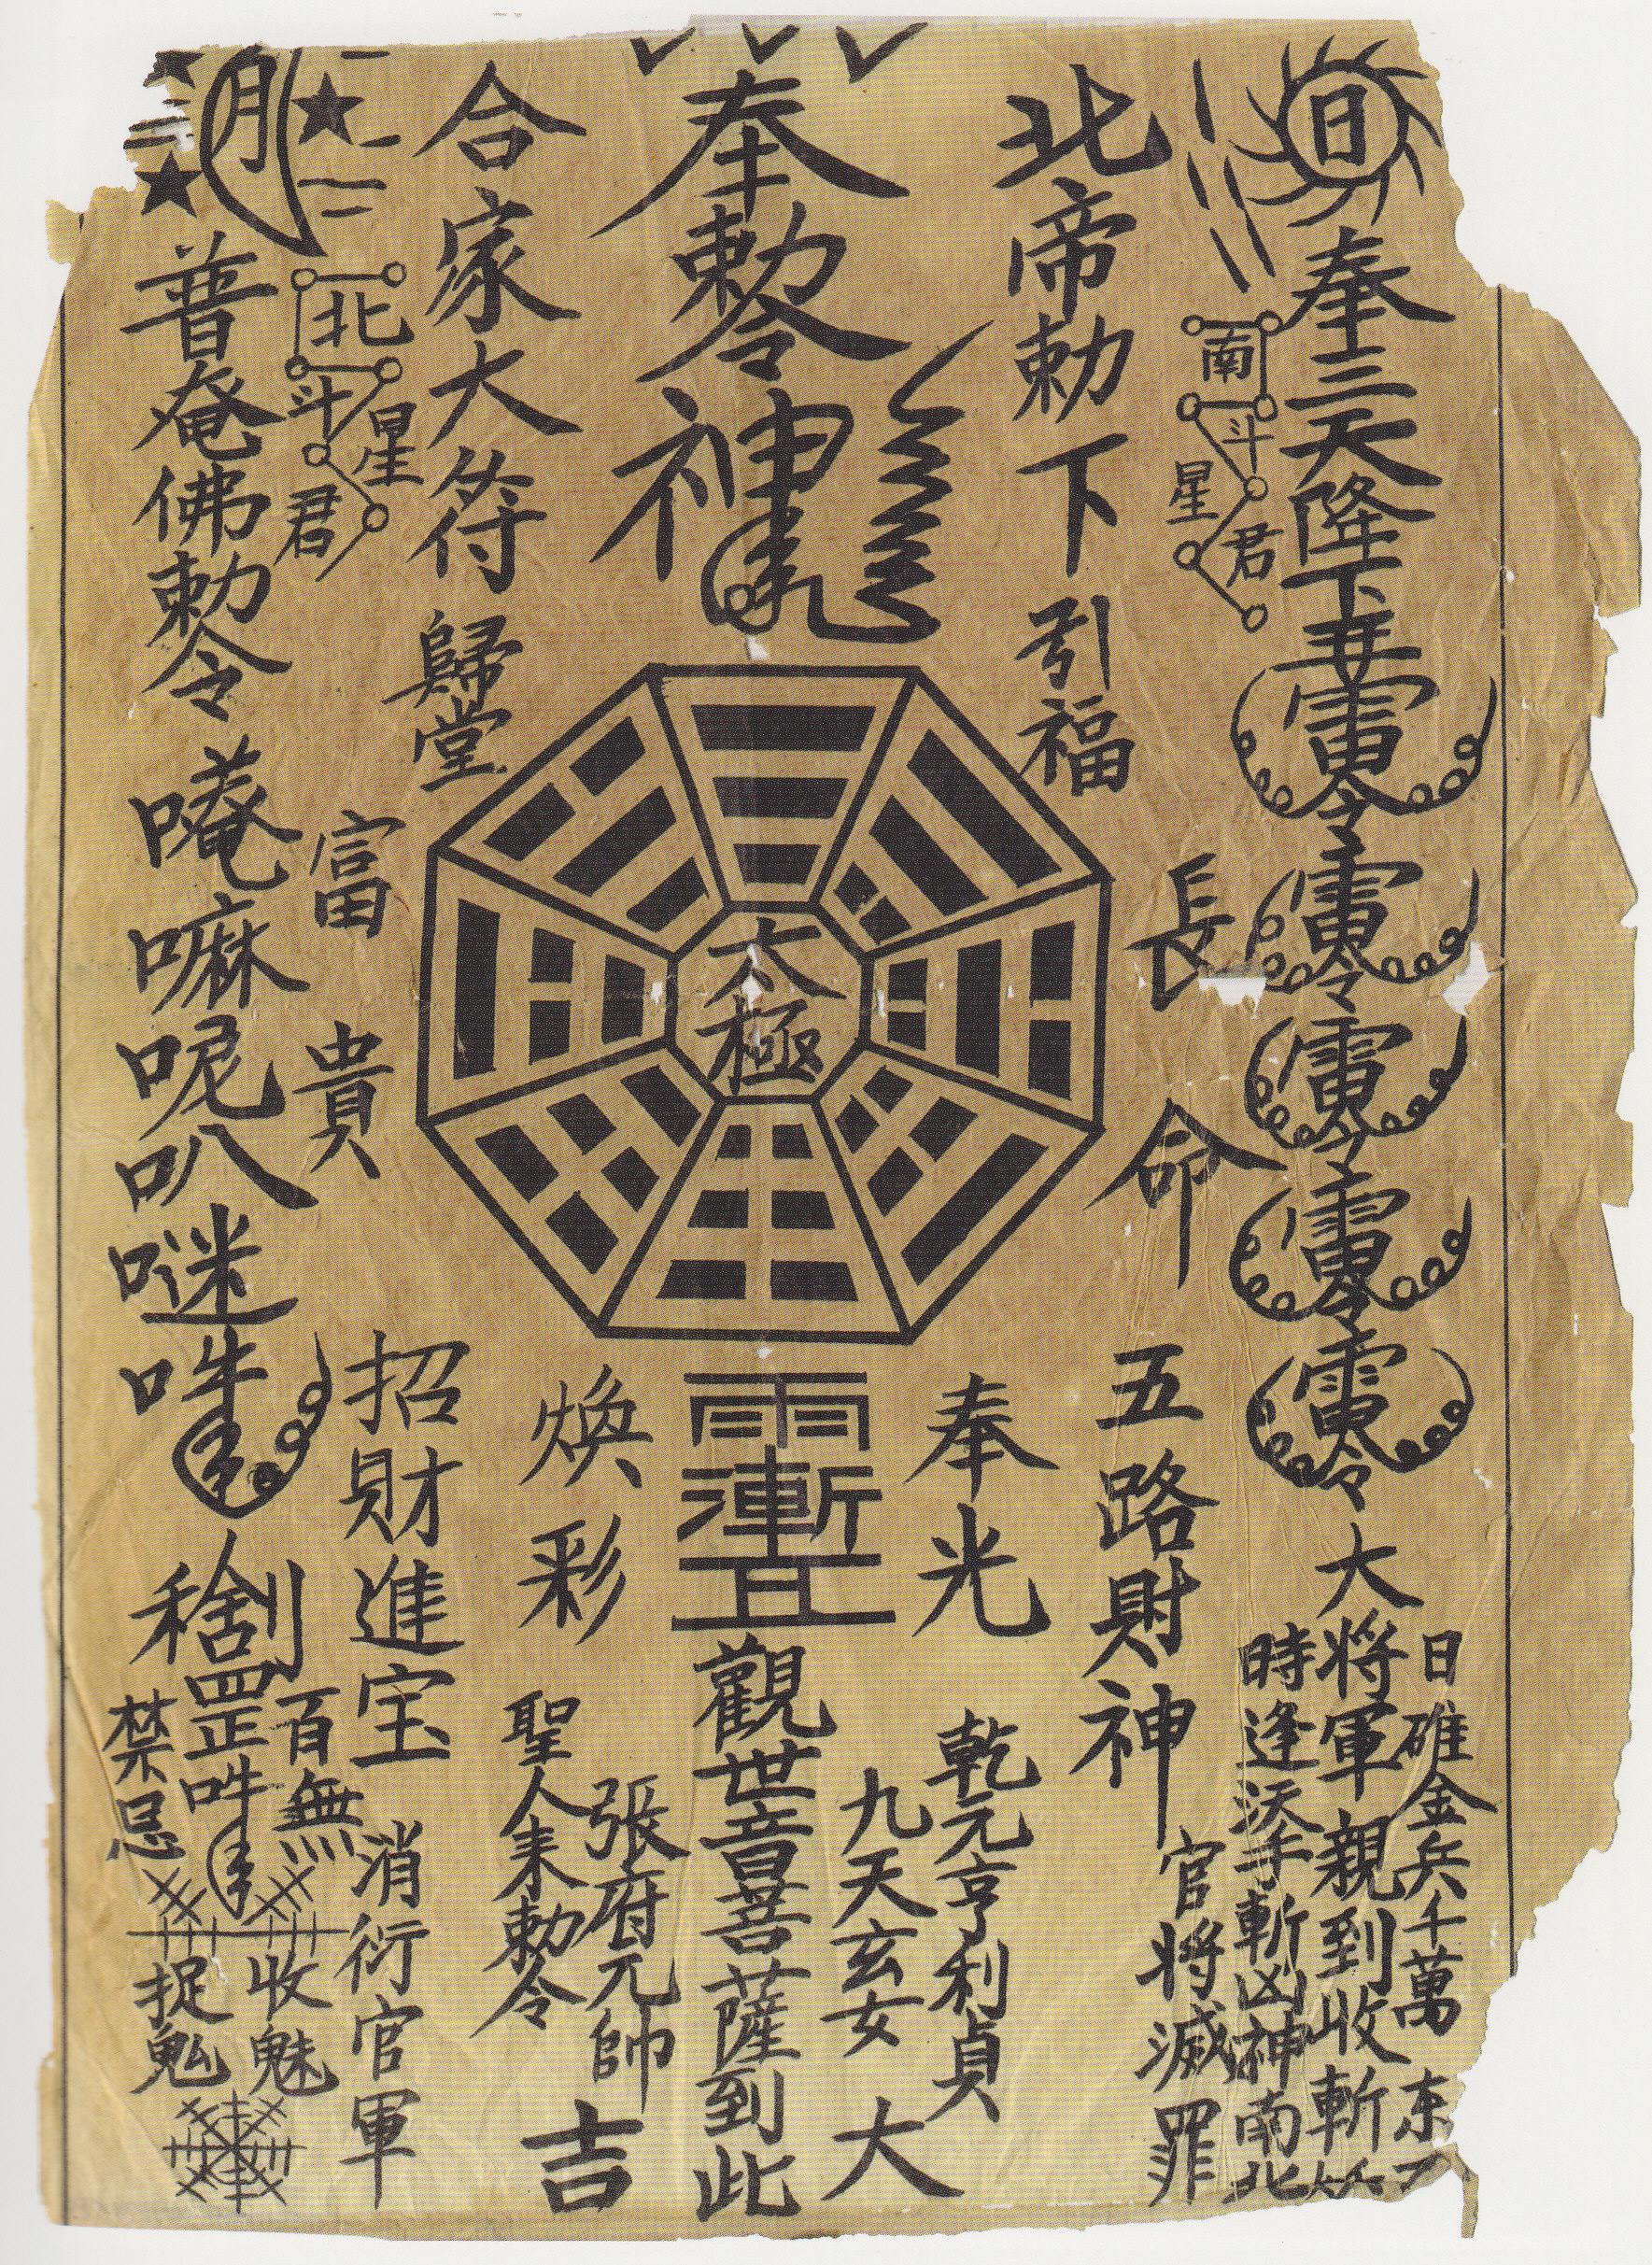 日
奉三天降下
大將軍親到收斬
日碓金兵千萬
東
時逢
手斬凶神南北
南斗星君
北帝勅下引福
長命
五路財神
官將滅罪
奉勅令
神
太極
奉光
煥彩
觀世音菩薩到此
乾元亨利貞
九天玄女
大吉
張府元帥
聖人
勅令
合家大符歸堂
富貴
招財進宝
消
官軍
月
北斗星君
普庵佛勅令
唵嘛呢叭
吽
罡
百無禁忌
收魅
捉鬼